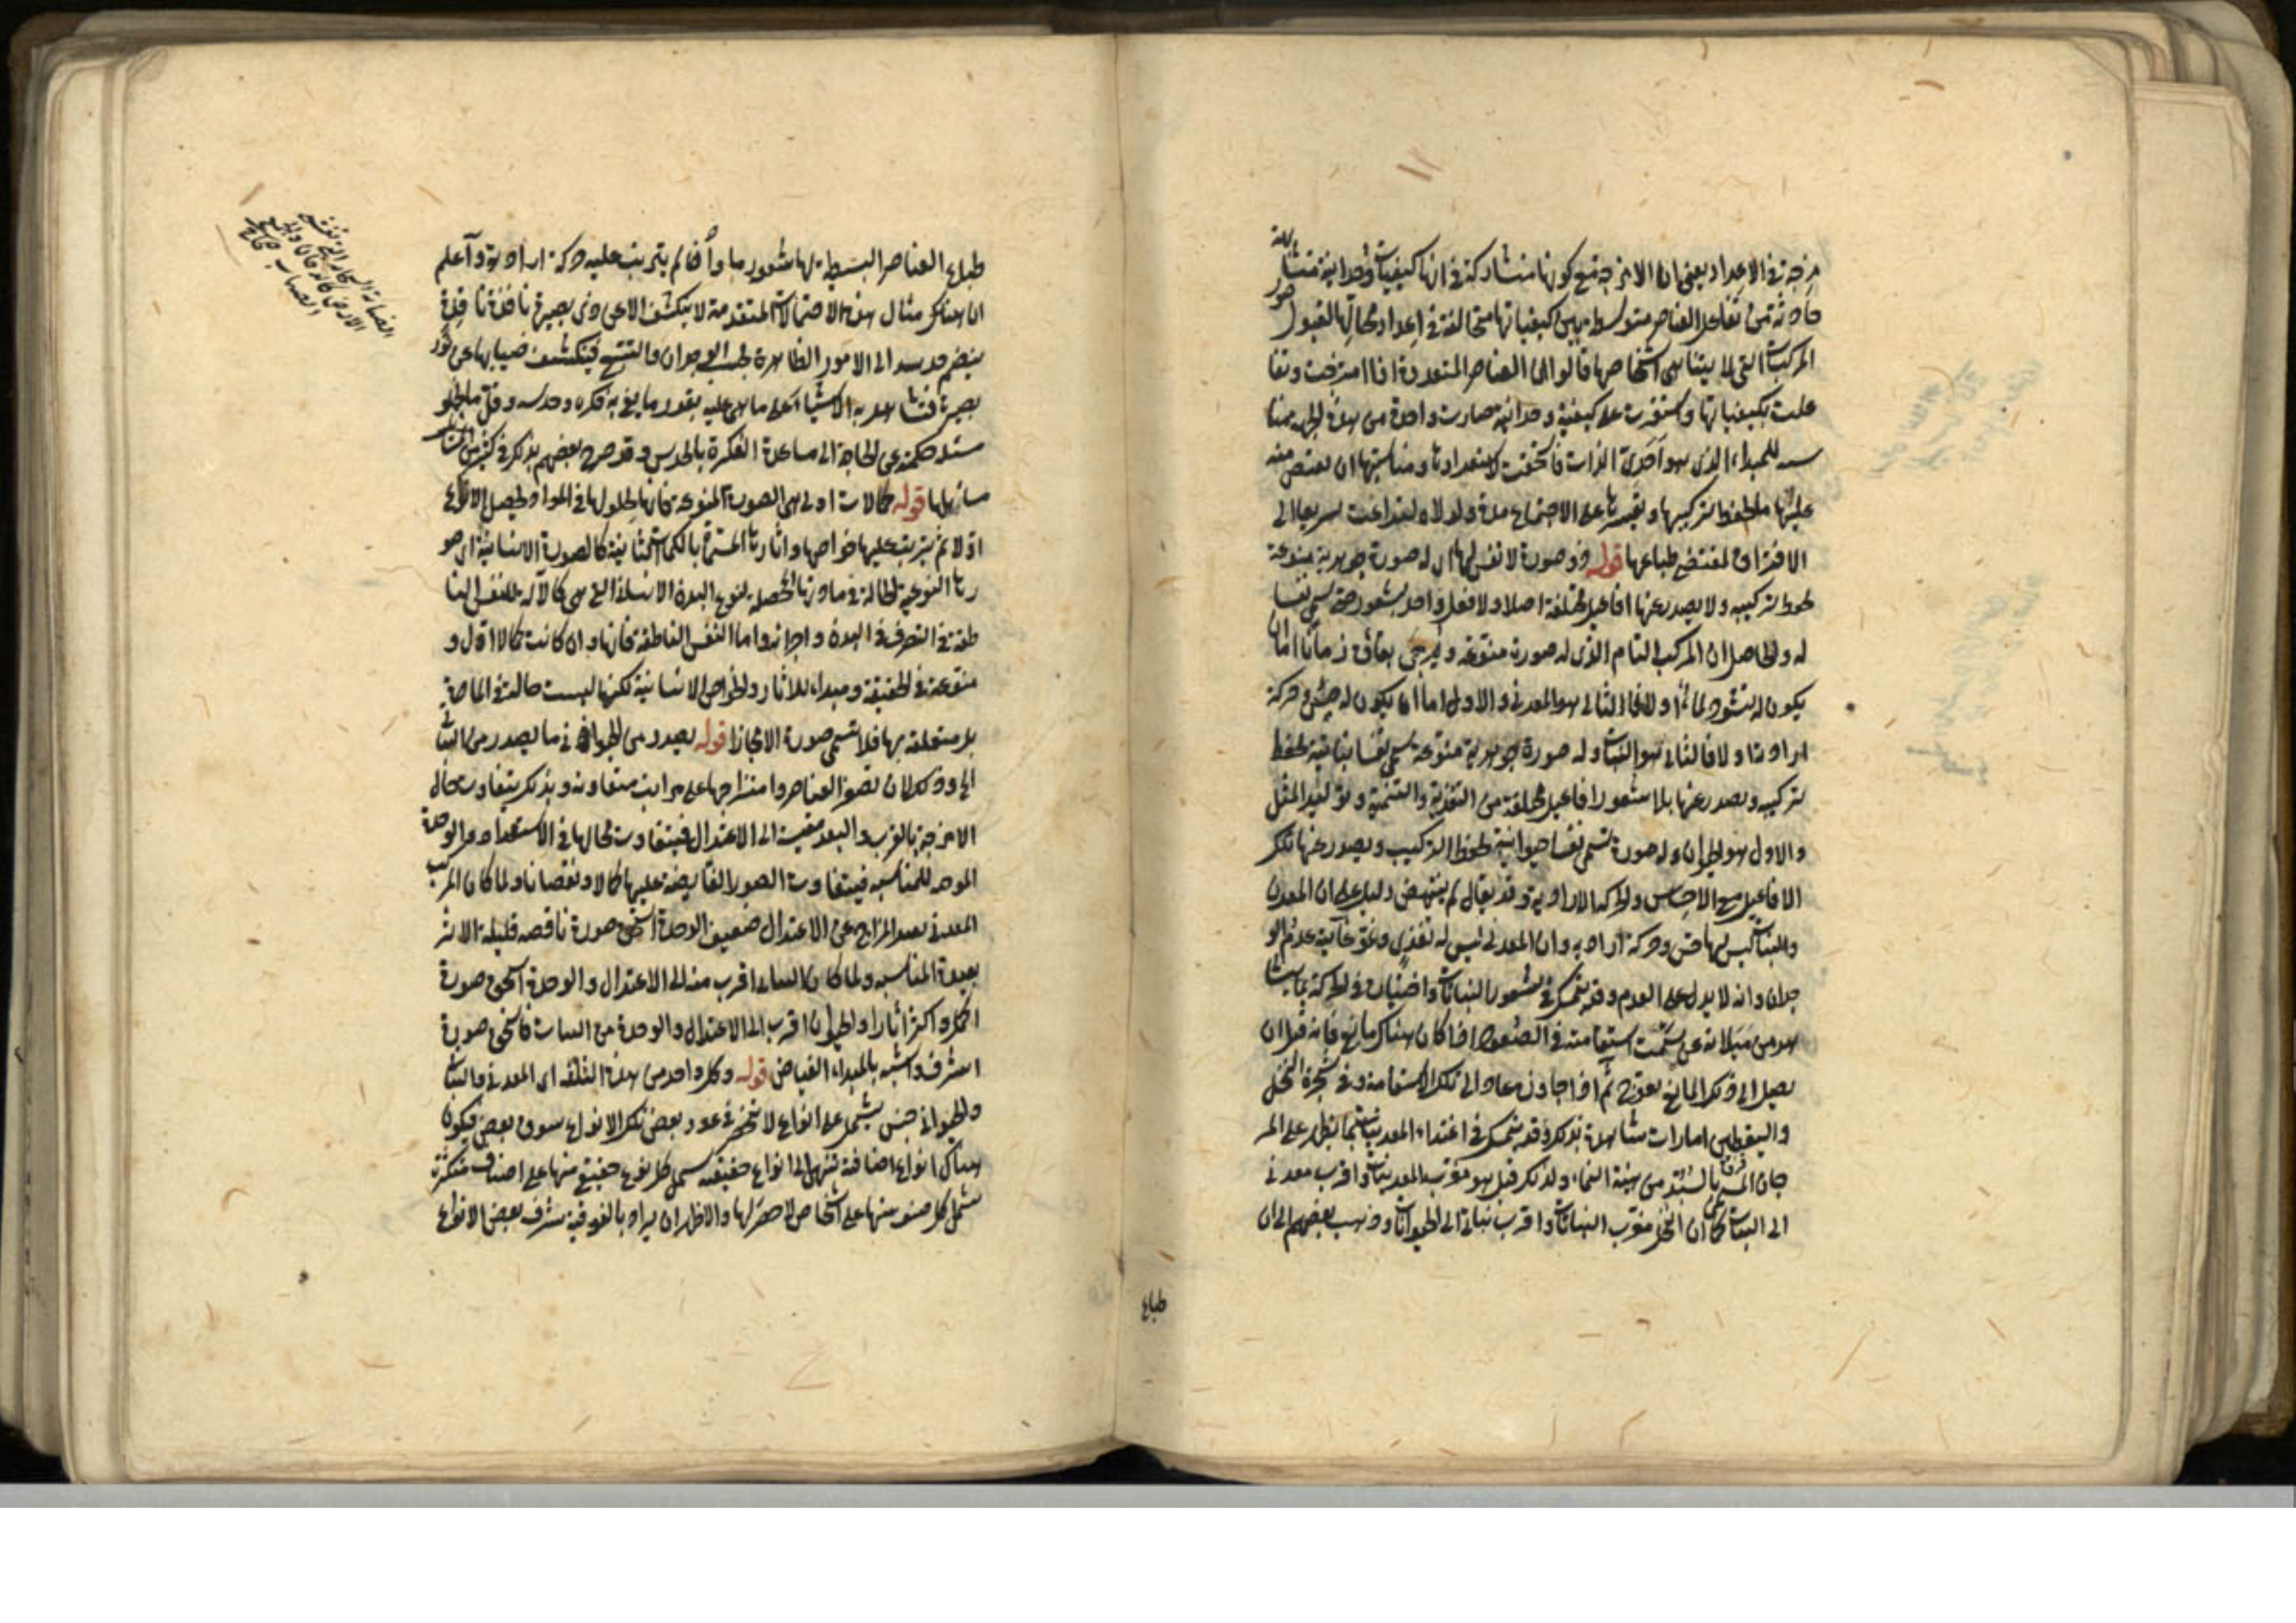 مزجة في الاعداد يعني ان الامزجة مع كونها متشاركة في انها كيفيات وحدانية متشابهة
حادثة من تفاعل العناصر متوسطة بين كيفياتها متخالفة في اعداد محالها لقبول صور
المركبات التي لا يتناهى اشخاصها قالوا ان العناصر المتعددة اذا امتزجت وتفا
علت بكيفياتها واستقرت على كيفية وحدانية صارت واحدة من هذه الجهة مناسبة
للمبداء الذي هو احدي الذات فاستحقت لاستعدادها ومناسبتها ان يفيض منه
عليها ما يحفظ تركيبها ويقسرها على الاجتماع مدة ولولاه لتداعت سريعا الى
الافتراق لمقتضى طباعها قوله ذو صورة لا نفس لها اي له صورة جوهرية منوعة
يحفظ تركيبه ولا يصدر عنها افاعيل مختلفة اصلا ولا فعل واحد بشعور حتى يسمى نفسا
له والحاصل ان المركب التام الذي له صورة منوعة ويرجى بقاؤه زمانا اما ان
يكون له نشو ونماء او لا فالثاني هو المعدني والاول اما ان يكون له حس وحركة
ارادية او لا فالثاني هو النبات وله صورة جوهرية منوعة تسمى نفسا نباتية يحفظ
تركيبه ويصدر عنها بلا شعور افاعيل مختلفة من التغذية والتنمية وتوليد المثل
والاول هو الحيوان وله صورة تسمى نفسا حيوانية يحفظ التركيب ويصدر عنها تلك
الافاعيل مع الاحساس والحركة الارادية وقد يقال لم ينتهض دليل على ان المعدن
والنبات ليس لهما حس وحركة ارادية وان المعدني ليس له تغذي ونمو غايته عدم الو
جدان وانه لا يدل على العدم وقد يتمسك في شعور النباتات واختيارها في الحركة بما يشا
هد من ميلانه عن سمت استقامته في الصعود اذا كان هناك مانع فانه قبل ان
يصل الى ذلك المانع يعوج ثم اذا جاوزه عاد الى تلك الاستقامة وفي شجرة النخل
واليقطين امارات شاهدة بذلك وقد يتمسك في اغتذاء المعدنيات بما يظهر على المر
جان من هيئة النماء ولذلك قيل هو مقرب المعدنيات واقرب معدني
الى النبات كما ان النخل مقرب النباتات واقرب نبات الى الحيوانات وذهب بعضهم الى ان
طباع
طباع العناصر البسيطة لها شعور ما واذا لم يترتب عليه حركة ارادية واعلم
ان هناك مثال هذه الاحتمالات المتقدمة لا ينكشف الا عن ذي بصيرة نافذة ناقدة
ينضم حدسه الى الامور الظاهرة بحسب الوجدان والتتبع فينكشف ضبابها عن نور
بصيرة فتشاهد به الاشياء على ما هي عليه بقدر ما يفي به فكره وحدسه وقل ما يخلو
مسئلة حكمية عن الحاجة الى مساعدة الفكرة بالحدس وقد صرح بعضهم بذلك في كثير من
مسائلها قوله كمالات اولى هي الصورة المنوعة فانها بحلولها في المواد يحصل الانواع
اولا ثم يترتب عليها خواصها واثارها المسماة بالكمالات الثانية كالصورة الانسانية اي صو
رتها النوعية الحالة في مادتها المحصلة لنوع البدن الانساني التي هي كالآلة للنفس النا
طقة في التصرف في البدن واجزائه واما النفس الناطقة فانها وان كانت كمالا اول و
منوعة في الحقيقة ومبداء للاثار والخواص الانسانية لكنها ليست حالة في المادة
بل متعلقة بها فلا تسمى صورة الا مجازا قوله يصدر من الحيوان ما يصدر من النبات
الى وذلك لان تصغر العناصر وامتزاجها على مراتب متفاوتة وبذلك يتفاوت حال
الامزجة بالقرب والبعد مقيسة الى الاعتدال فيتفاوت محالها في الاستعداد والوحدة
الموجبة للمناسبة فيتفاوت الصور الفايضة عليها كمالا ونقصانا ولما كان المركب
المعدني بعيد المزاج عن الاعتدال ضعيف الوحدة استحق صورة ناقصة قليلة الاثر
بعيدة المناسبة ولما كان النبات اقرب منه الى الاعتدال والوحدة استحق صورة
اكمل واكثر آثارا والحيوان اقرب الى الاعتدال والوحدة من النبات فاستحق صورة
اشرف واشبه بالمبداء الفياض قوله وكل واحد من هذه الثلثة اي المعدني والنباتي
والحيواني جنس يشتمل على انواع لا تنحصر في عدد بعض تلك الانواع فوق بعض فيكون
هناك انواع اضافة تنتهي الى انواع حقيقية يشمل كل نوع حقيقي منها على اصناف متكثرة
يشمل كل صنف منها على اشخاص لا حصر لها والاظهر ان يراد بالفوقية شرف بعض الانواع